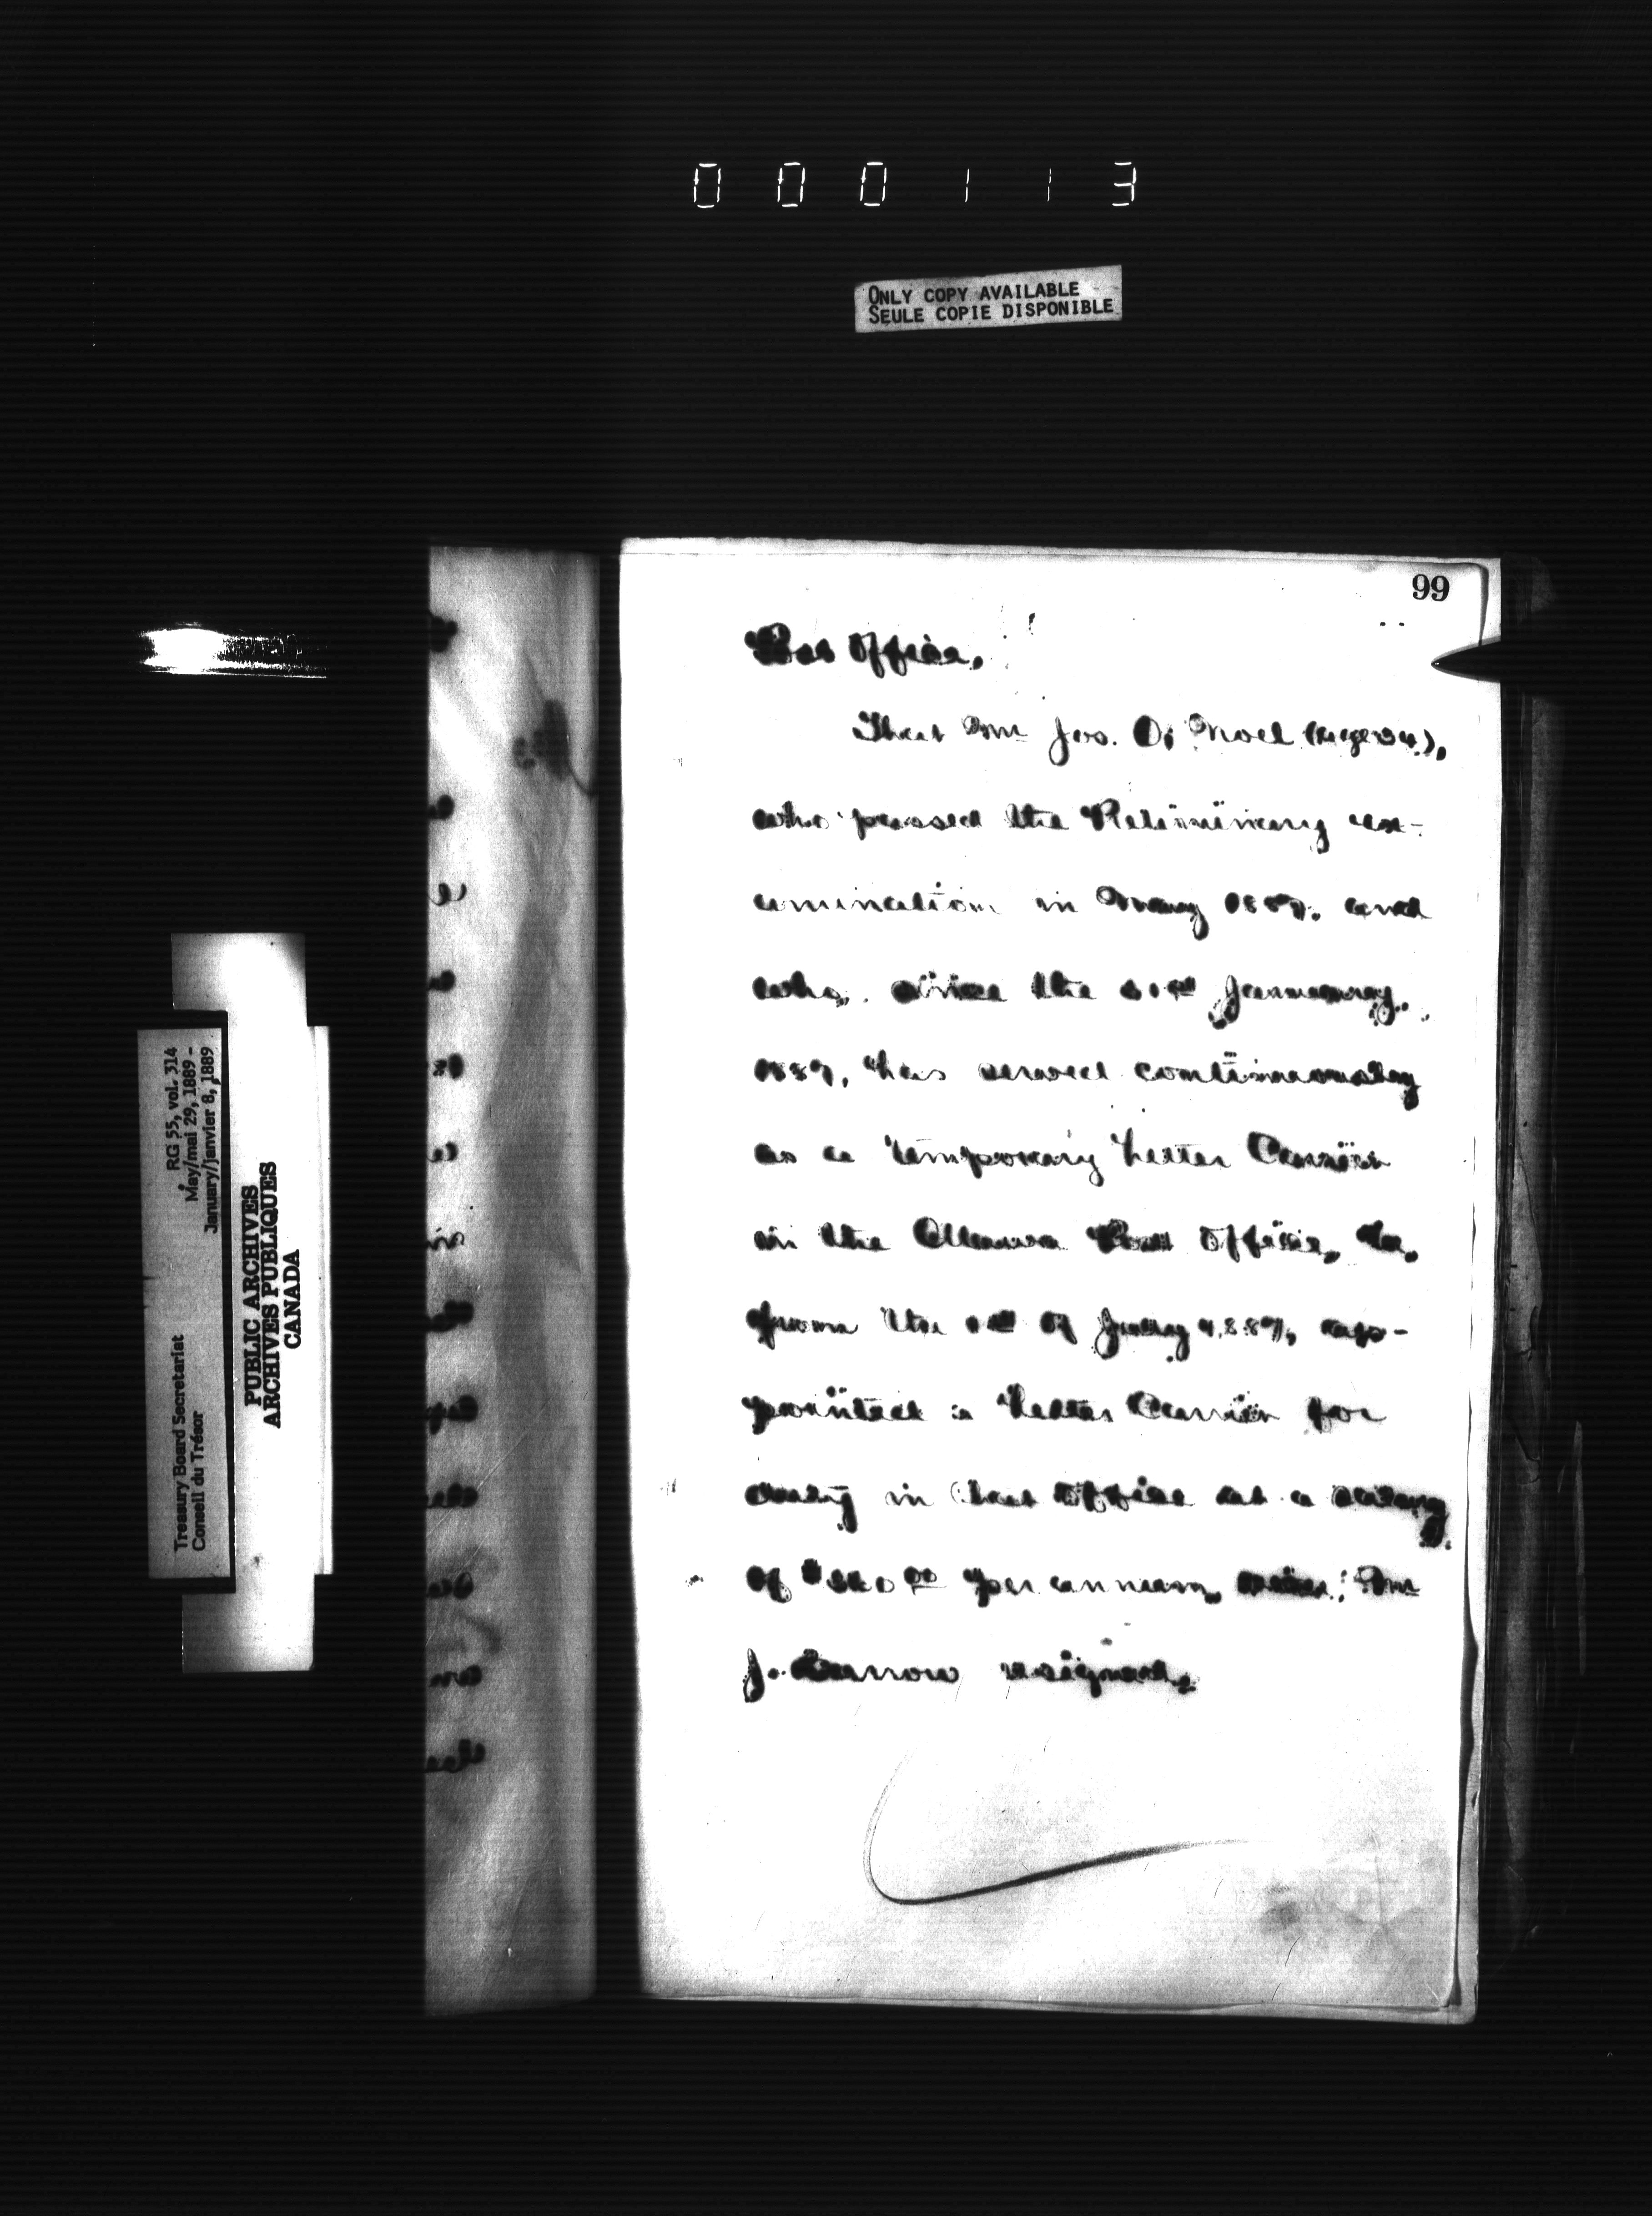 000113
ONLY COPY AVAILABLE
SEULE COPIE DISPONIBLE
RG 55, vol. 314
May/mai 29, 1889 -
January/janvier 8, 1889
Treasury Board Secretariat
Conseil du Trésor
PUBLIC ARCHIVES
ARCHIVES PUBLIQUES
CANADA
99
Post Office,
That Mr Jos. O. Noel (Age 24),
who passed the Preliminary ex-
amination in May 1887, and
who, since the January,
1887, has served continuously
as a temporary Letter Carrier
in the Ottawa Post Office, be,
from the 1st of July 1889, ap-
pointed a Letter Carrier for
duty in that Office at a salary
of per annum, vice: Mr
J. Barrow resigned.